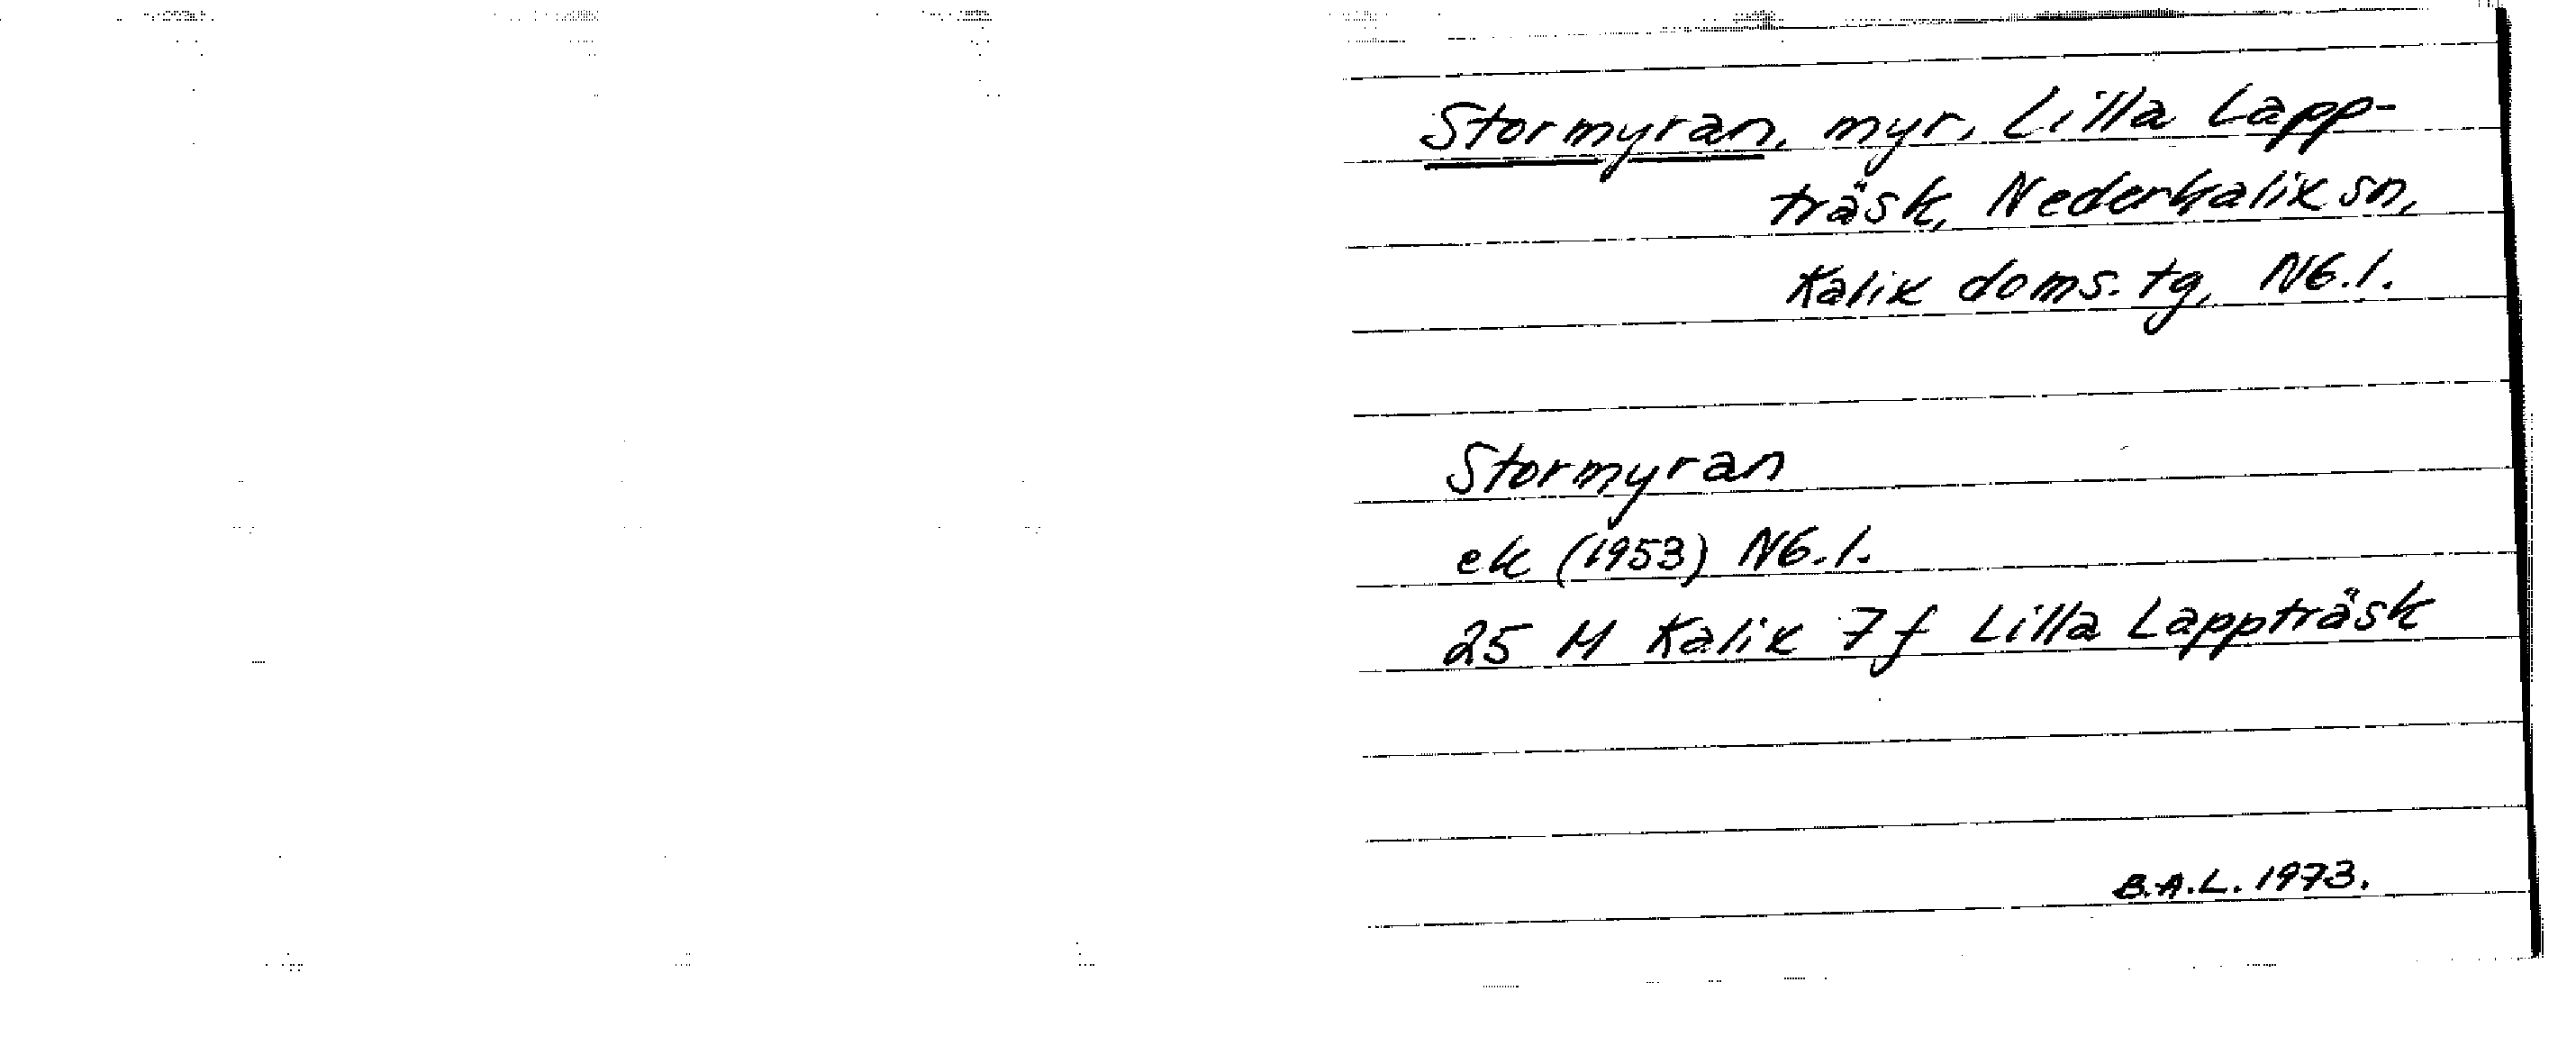 Stormyran, myr, Lilla Lapp-
träsk, Nederkalix sn,
Kalix doms. tg, Nb.l.
Stormyran
ek (1953) Nb.l.
25 M Kalix 7 f Lilla Lappträsk
B.A.L. 1973.